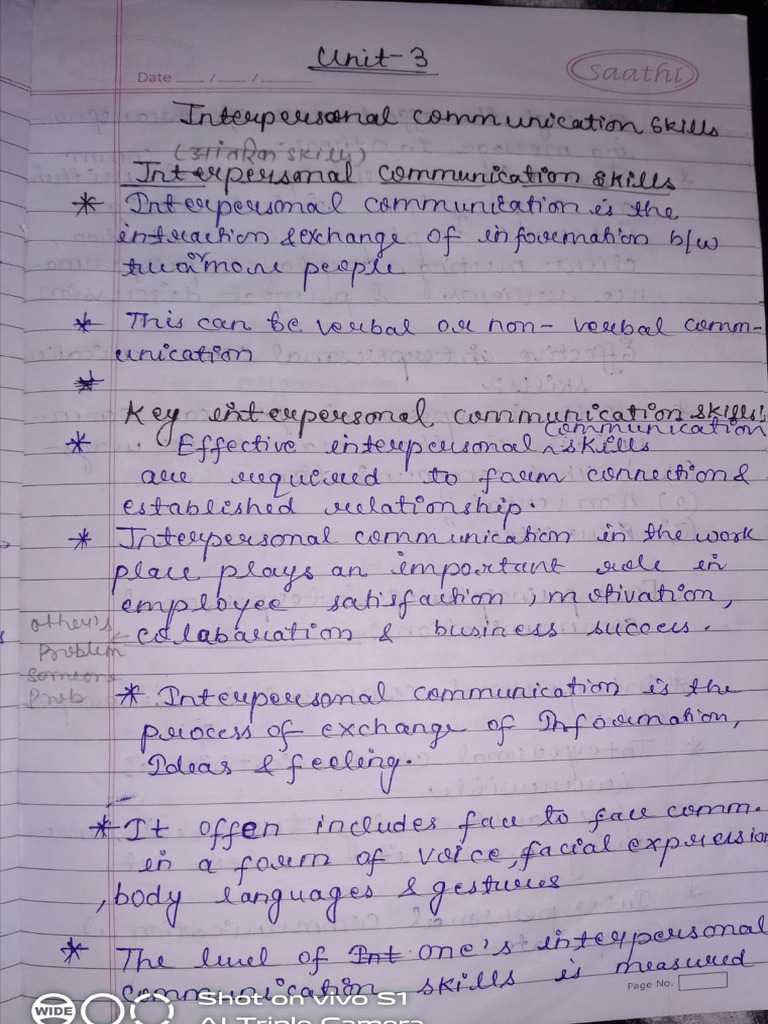 Unit-3
Date / /
Saathi
Interpersonal communication skills
(आंतरिक skills)
Interpersonal communication skills
* Interpersonal communication is the
interaction & exchange of information b/w
two or more people
* This can be verbal or non-verbal comm-
unication
*
Key interpersonal communication skills:
communication
* Effective interpersonal ^ skills
are required to form connection &
established relationship.
* Interpersonal communication in the work
place plays an important role in
employee satisfaction, motivation,
other's
colabaration & business success.
problem
someone
prob
* Interpersonal communication is the
process of exchange of Information,
Ideas & feeling.
* It offen includes face to face comm.
in a form of voice, facial expression
, body languages & gestures
* The level of Int one's interpersonal
communication skills is measured
Page No.
WIDE
Shot on vivo S1
AI Triple Camera